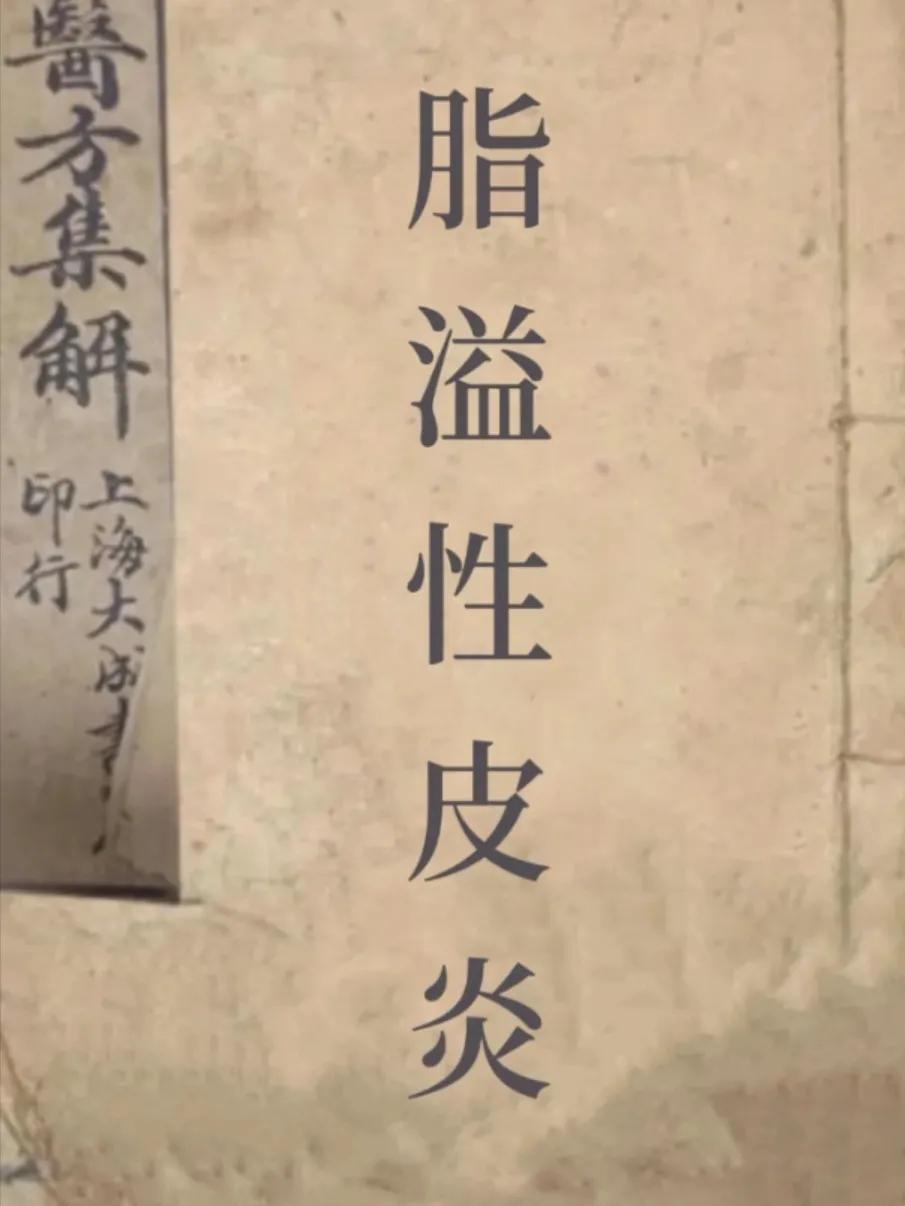 脂溢性皮炎
醫方集解
上海大成書
印行